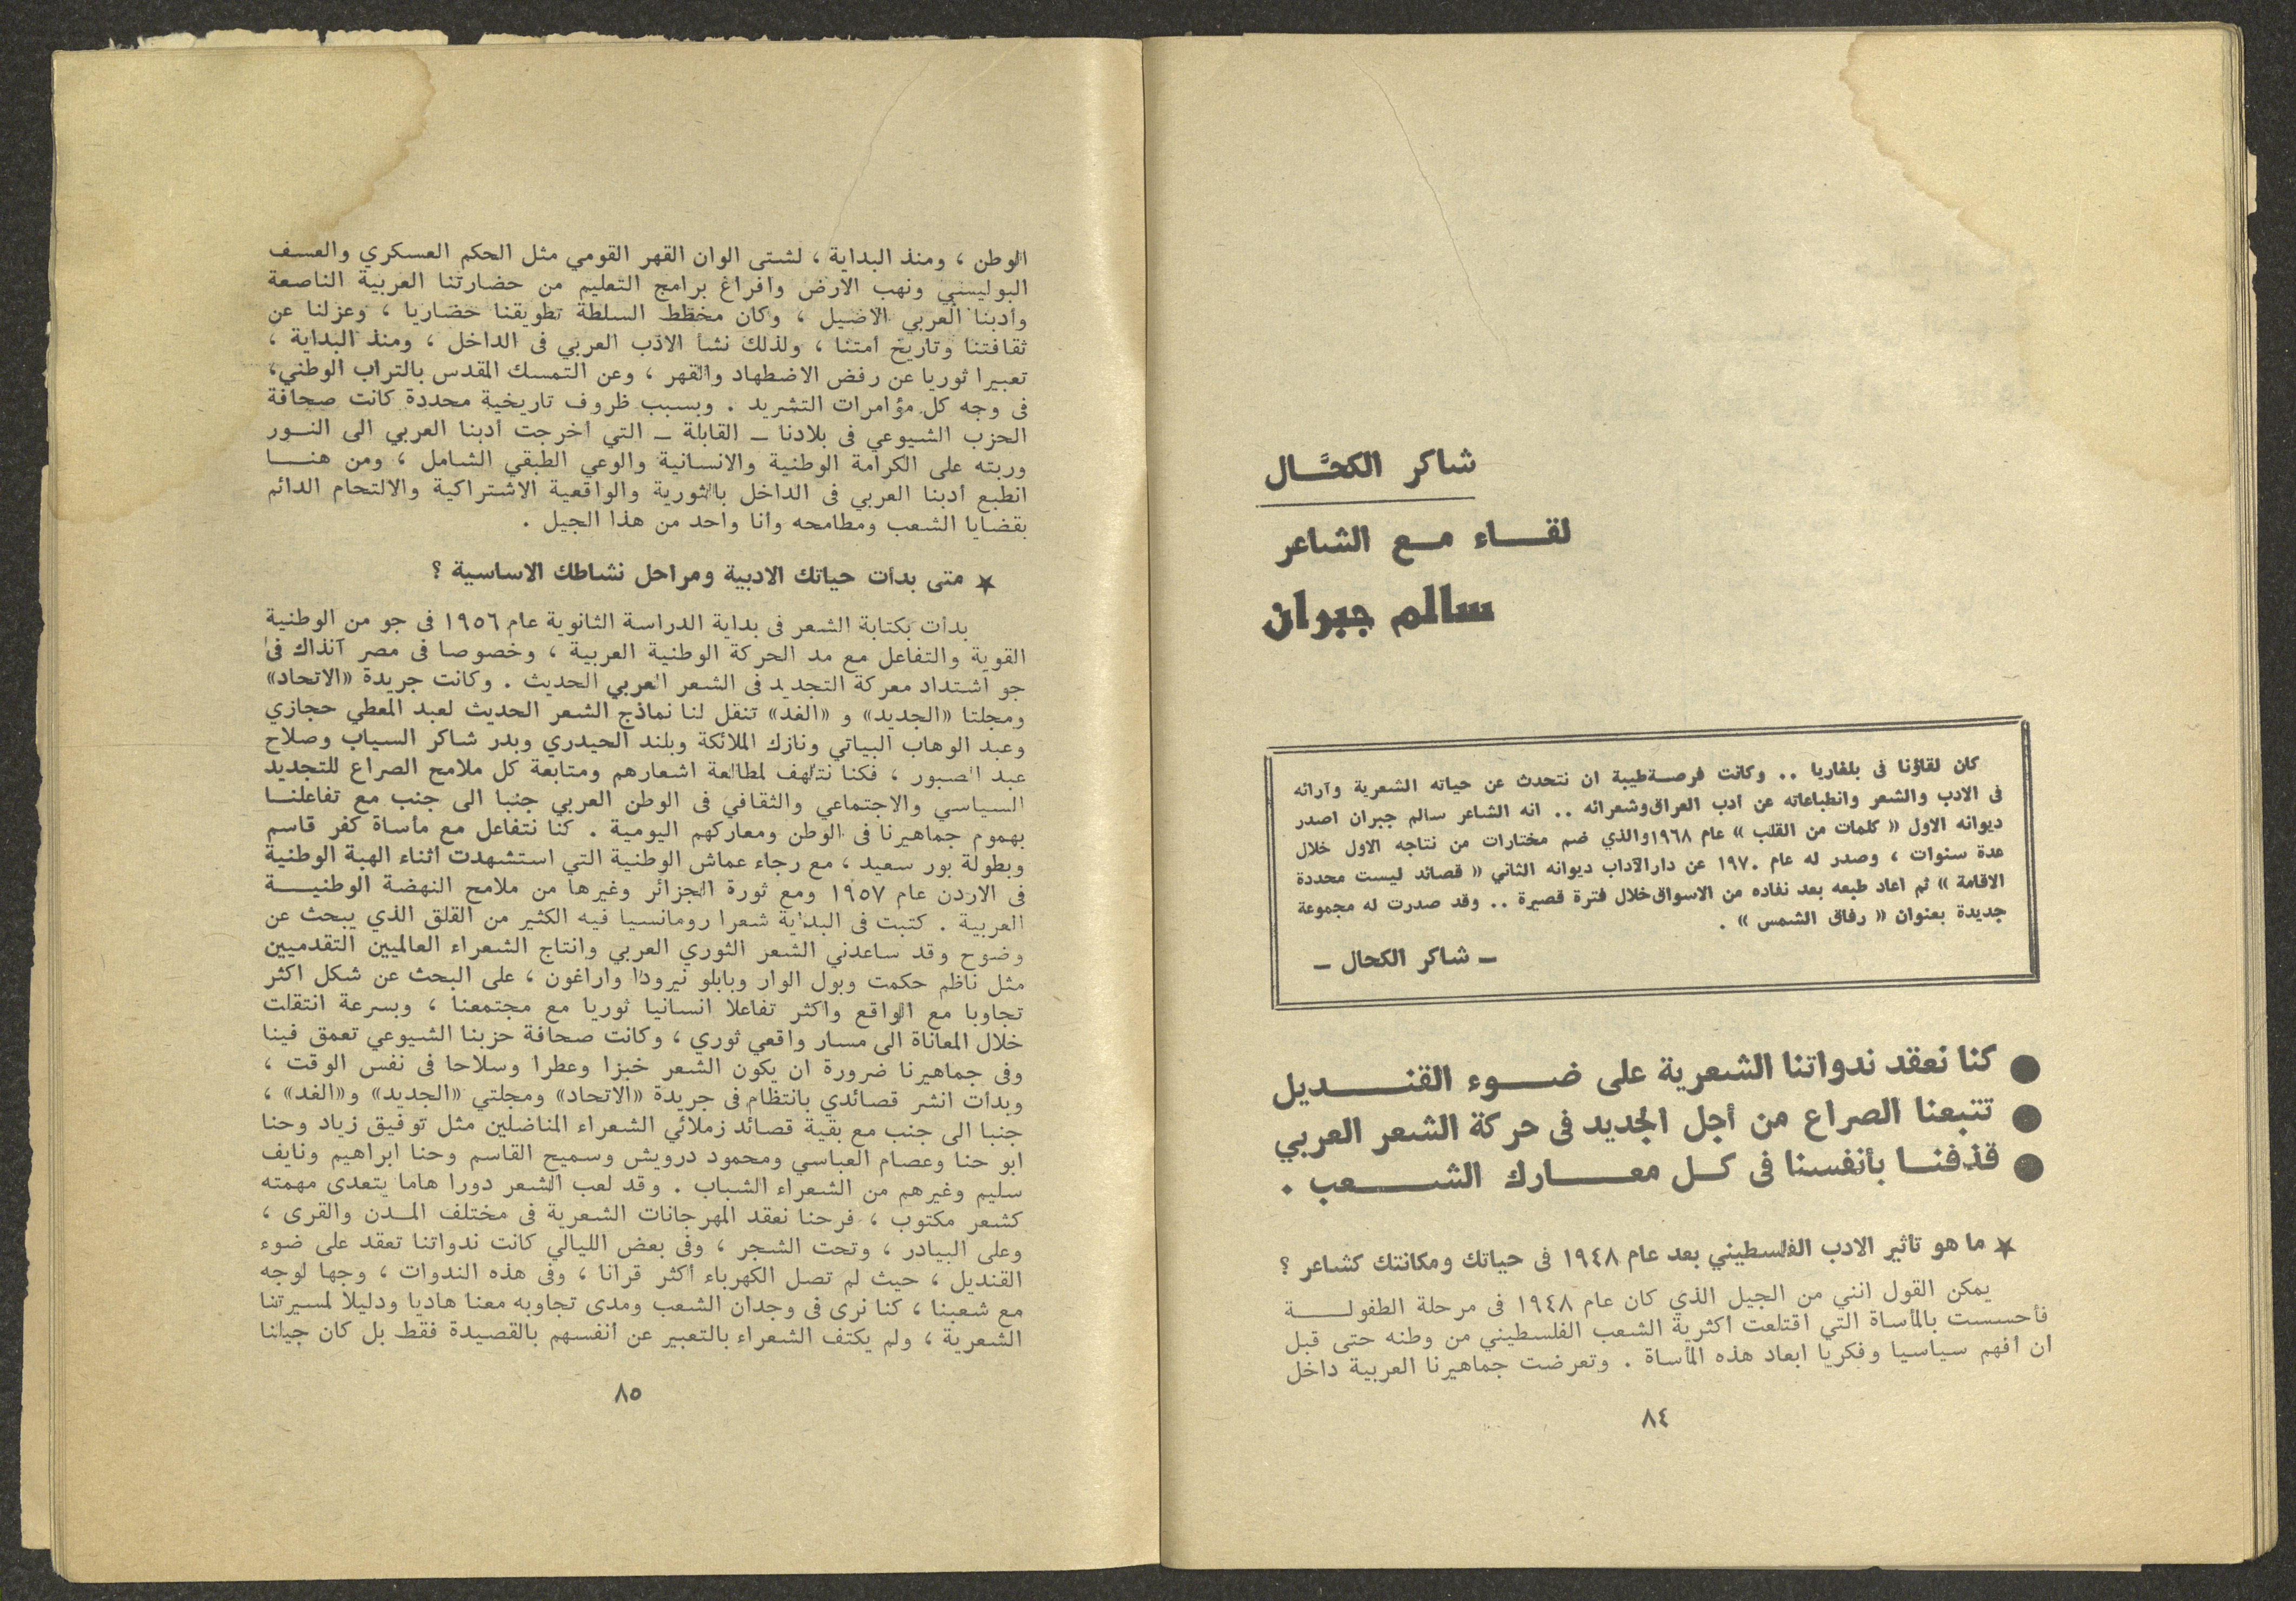 شاكر الكحَّـال
لقـــاء مـع الشاعر
سالم جبران
كان لقاؤنا فى بلغاريا .. وكانت فرصـةطيبة ان نتحدث عن حياته الشعرية وآرائه
فى الادب والشعر وانطباعاته عن ادب العراق‌وشعرائه .. انه الشاعر سالم جبران اصدر
ديوانه الاول « كلمات من القلب » عام ١٩٦٨والذي ضم مختارات من نتاجه الاول خلال
عدة سنوات ، وصدر له عام ١٩٧٠ عن دارالآداب ديوانه الثاني « قصائد ليست محددة
الاقامة » ثم اعاد طبعه بعد نفاده من الاسواق‌خلال فترة قصيرة .. وقد صدرت له مجموعة
جديدة بعنوان « رفاق الشمس » .
ـ شاكر الكحال ـ
● كنا نعقد ندواتنا الشعرية على ضـــوء القنـــــديل
● تتبعنا الصراع من أجل الجديد فى حركة الشعر العربي
● قذفنــا بأنفسنا فى كــل معــــارك الشــــــعب .
★ ما هو تاثير الادب الفلسطيني بعد عام ١٩٤٨ فى حياتك ومكانتك كشاعر ؟
يمكن القول انني من الجيل الذي كان عام ١٩٤٨ فى مرحلة الطفولـــــة
فأحسست بالمأساة التي اقتلعت اكثرية الشعب الفلسطيني من وطنه حتى قبل
ان افهم سياسيا وفكريا ابعاد هذه المأساة . وتعرضت جماهيرنا العربية داخل
٨٤
الوطن ، ومنذ البداية ، لشتى الوان القهر القومي مثل الحكم العسكري والعسـف
البوليسي ونهب الارض وافراغ برامج التعليم من حضارتنا العربية الناصعة
وأدبنا العربي الاصيل ، وكان مخطط السلطة تطويقنا حضاريا ، وعزلنا عن
ثقافتنا وتاريخ امتنا ، ولذلك نشأ الادب العربي فى الداخل ، ومنذ البداية ،
تعبيرا ثوريا عن رفض الاضطهاد والقهر ، وعن التمسك المقدس بالتراب الوطني،
فى وجه كل مؤامرات التشريد . وبسبب ظروف تاريخية محددة كانت صحافة
الحزب الشيوعي فى بلادنا ـ القابلة ـ التي اخرجت أدبنا العربي الى النـور
وربته على الكرامة الوطنية والانسانية والوعي الطبقي الشامل ، ومن هنـــا
انطبع أدبنا العربي فى الداخل بالثورية والواقعية الاشتراكية والالتحام الدائم
بقضايا الشعب ومطامحه وانا واحد من هذا الجيل .
★ متى بدأت حياتك الادبية ومراحل نشاطك الاساسية ؟
بدأت بكتابة الشعر فى بداية الدراسة الثانوية عام ١٩٥٦ فى جو من الوطنية
القوية والتفاعل مع مد الحركة الوطنية العربية ، وخصوصا فى مصر آنذاك فى
جو اشتداد معركة التجديد فى الشعر العربي الحديث . وكانت جريدة «الاتحاد»
ومجلتا «الجديد» و «الغد» تنقل لنا نماذج الشعر الحديث لعبد المعطي حجازي
وعبد الوهاب البياتي ونازك الملائكة وبلند الحيدري وبدر شاكر السياب وصلاح
عبد الصبور ، فكنا نتلهف لمطالعة اشعارهم ومتابعة كل ملامح الصراع للتجديد
السياسي والاجتماعي والثقافي فى الوطن العربي جنبا الى جنب مع تفاعلنــا
بهموم جماهيرنا فى الوطن ومعاركهم اليومية . كنا نتفاعل مع مأساة كفر قاسم
وبطولة بور سعيد ، مع رجاء عماش الوطنية التي استشهدت اثناء الهبة الوطنية
فى الاردن عام ١٩٥٧ ومع ثورة الجزائر وغيرها من ملامح النهضة الوطنيــــة
العربية . كتبت فى البداية شعرا رومانسيا فيه الكثير من القلق الذي يبحث عن
وضوح وقد ساعدني الشعر الثوري العربي وانتاج الشعراء العالميين التقدميين
مثل ناظم حكمت وبول الوار وبابلو نيرودا واراغون ، على البحث عن شكل اكثر
تجاوبا مع الواقع واكثر تفاعلا انسانيا ثوريا مع مجتمعنا ، وبسرعة انتقلت
خلال المعاناة الى مسار واقعي ثوري ، وكانت صحافة حزبنا الشيوعي تعمق فينا
وفى جماهيرنا ضرورة ان يكون الشعر خبزا وعطرا وسلاحا فى نفس الوقت ،
وبدأت انشر قصائدي بانتظام فى جريدة «الاتحاد» ومجلتي «الجديد» و«الغد» ،
جنبا الى جنب مع بقية قصائد زملائي الشعراء المناضلين مثل توفيق زياد وحنا
ابو حنا وعصام العباسي ومحمود درويش وسميح القاسم وحنا ابراهيم ونايف
سليم وغيرهم من الشعراء الشباب . وقد لعب الشعر دورا هاما يتعدى مهمته
كشعر مكتوب ، فرحنا نعقد المهرجانات الشعرية فى مختلف المـدن والقرى ،
وعلى البيادر ، وتحت الشجر ، وفى بعض الليالي كانت ندواتنا تعقد على ضوء
القنديل ، حيث لم تصل الكهرباء أكثر قرانا ، وفى هذه الندوات ، وجها لوجه
مع شعبنا ، كنا نرى فى وجدان الشعب ومدى تجاوبه معنا هاديا ودليلا لمسيرتنا
الشعرية ، ولم يكتف الشعراء بالتعبير عن انفسهم بالقصيدة فقط بل كان جيلنا
٨٥